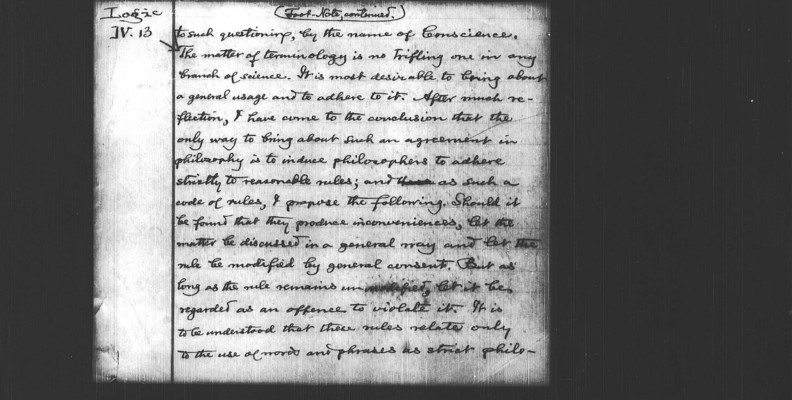 Logic
IV. 13
(Foot-Note, continued.)
to such questioning, by the name of Conscience.
The matter of terminology is no trifling one in any
branch of science. It is most desirable to bring about
a general usage and to adhere to it. After much re-
flection, I have come to the conclusion that the
only way to bring about such an agreement in
philosophy is to induce philosophers to adhere
strictly to reasonable rules; and as such a
code of rules, I propose the following. Should it
be found that they produce inconveniences, let the
matter be discussed in a general way and let the
rule be modified by general consent. But as
long as the rule remains un let it be
regarded as an offence to violate it. It is
to be understood that these rules relate only
to the use of words and phrases as strict philo-